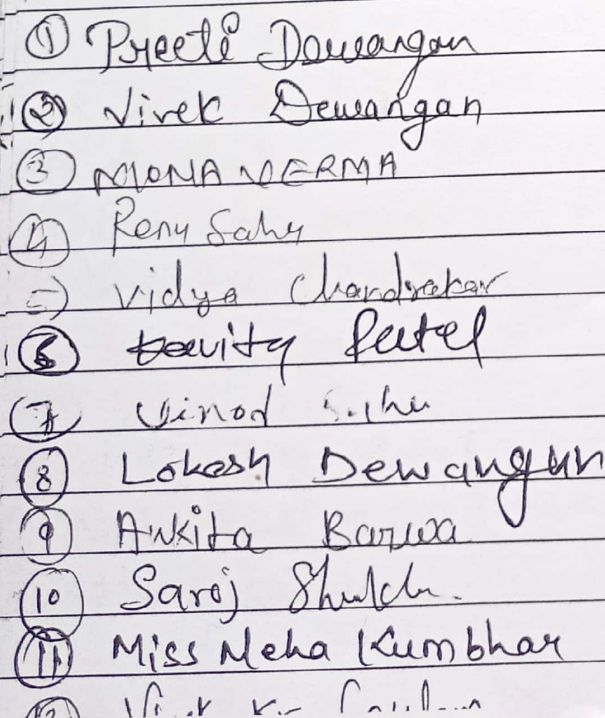 1 Preeti Dewangan
2 Vivek Dewangan
3 MONA VERMA
4 Renu Sahu
5 Vidya Chandrakar
6 Patel
7 Vinod Sahu
8 Lokesh Dewangan
9 Ankita Barwa
10 Saroj Shukla
11 Miss Neha Kumbhar